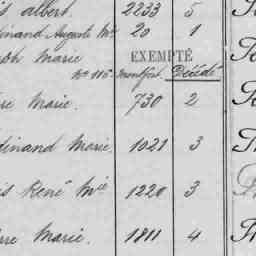 is albert. 2233 5
dinand Auguste Mie 20 1
ph Marie EXEMPTÉ
No 115 montfort. Décédé
re Marie. 730 2
dinand Marie 1021 3
is René Mie 1220 3
rre Marie. 1811 4